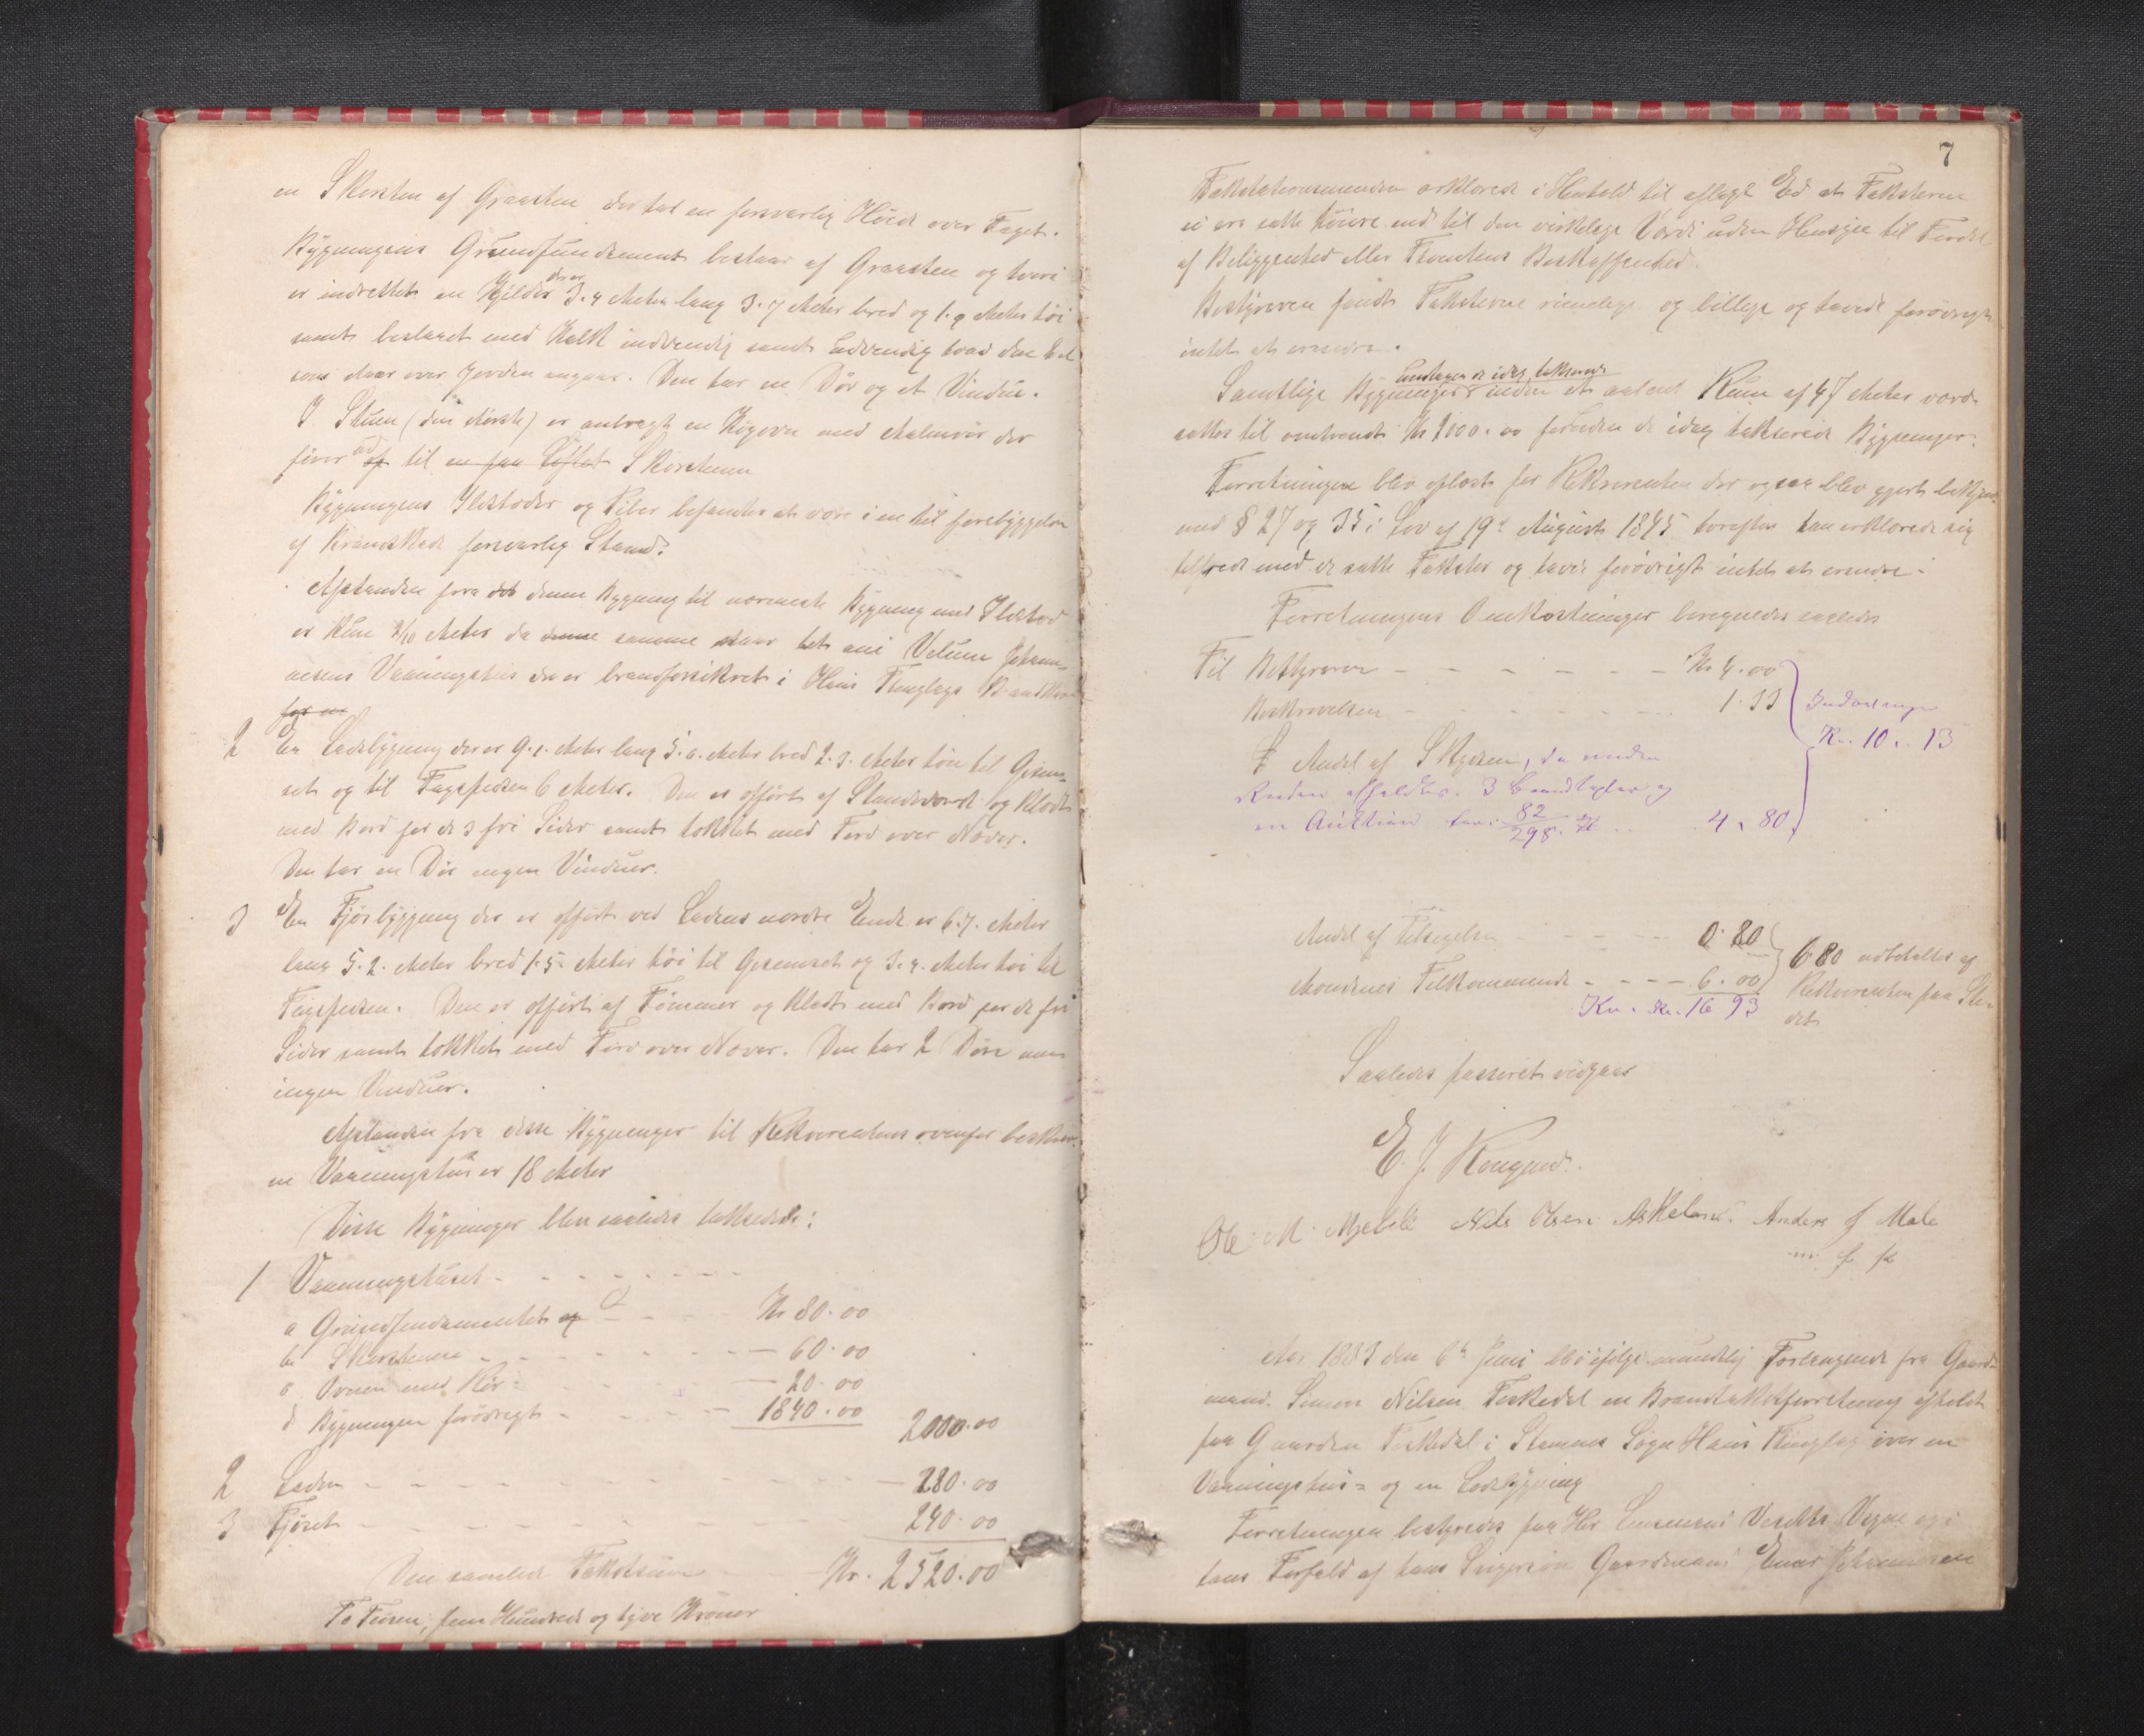 en Skorsten af Graasten der har en forsvarlig Höide over Taget.
Bygningens Grundfundament bestaar af Graasten og hvori
er indrettet en Kjelder der er 3.4 Meter lang 3.7 Meter bred og 1.9 Meter höi
samt beslaget med Kalk indvendig samt udvendig hvad den Del
som staar over Jorden angaar. Den har en Dör og et Vindue.
I Stuen (den störste) er anbragt en Kogovn med Malmrör der
förer ud af til en paa Loftet Skorstenen
Bygningens Ildsteder og Piber befandtes at være i en til forebyggelse
af Brandskade forsvarlig Stand.
Afstanden fra det denne Bygning til nærmeste Bygning med Ildsted
er kun 2/10 Meter da denne samme staar tæt ani Johan-
nesens Vaaningshus der er brandforsikret i Haus Thinglags Brandkasse
for en
2 En Ladebygning der er 9.1. Meter lang 5.6. Meter bred 2.3. Meter höi til Gesim-
set og til Tagspidsen 6 Meter. Den er opfört af Standværk og klædt
med Bord for de 3 fri Sider samt tækket med Torv over Næver.
Den har en Dör ingen Vinduer.
3 En Fjösbygning der er opfört ved Ladens nordre Ende er 6.7. Meter
lang 5.2. Meter bred 1.5 Meter höi til Gesimset og 3.4. Meter höi til
Tagspidsen. Den er opfört af Tömmer og klædt med Bord paa de fri
Sider samt tækket med Torv over Næver. Den har 2 Döre men
ingen Vinduer.
Afstanden fra disse Bygninger til Rekvirentens ovenfor beskrev-
ne Vaaningshus er 18 Meter
Disse Bygninger blev saaledes takserede:
1 Vaaningshuset - - - - - - -
a Grundfundamentet og - - - Kr 80.00
b Skorstenen - - - - - - - 60.00
c Ovnen med Rör - - - 20.00
d Bygningen forövrigt - - - - 1840.00 2000.00
2 Laden - - - - - - - - - - 280.00
3 Fjöset - - - - - - - - - - 240.00
Den samlede Takstsum - - Kr. 2520.00
To Tusen, fem Hundrede og tyve Kroner
7
Takstationsmænden erklærede i Henhold til aflagt Ed at Taksterne
ei ere satte höiere end til den virkelige Værdi uden Hensyn til Fordel
af Beliggenhed eller Tomtens Beskaffenhed.
Bestyreren fandt Taksterne rimelige og billige og havde forövrigt
intet at erindre.
undtagen de idag takserede
Samtlige Bygninger inden et aabent Rum af 47 Meter værd-
sattes til omtrendt Kr 2000.00 foruden de idag takserede Bygninger.
Forretningen blev oplæst for Rekvirenten der ogsaa blev gjort bekjendt
med § 27 og 35 i Lov af 19de August 1845 hvorefter han erklærede sig
tilfreds med de satte Takster og havde forövrigt intet at erindre.
Forretningens Omkostninger beregnedes saaledes
Til Bestyreren - - - - - - - Kr 4.00
Beskrivelsen - - - - - - - 1.33
Indbetinges
Kr. 10 .. 13
Andel af Skydsen, da under
Reisen afholdtes 3 Brandtaxter og
en Auktion har: 82/298 .. 4, 80
Andel af Tilsigelsen - - - - 0.80
Mændenes Tilkommende - - - - 6.00
6.80 udbetaltes af
Rekvirenten paa Ste-
det
Kr. 16 93
Saaledes passeret vidgaar
E. J. Kongsvd.
Ole M. Mjelde Nils Olsen Askeland. Anders J Male
m. f. p.
Aar 1883 den 6te Juni blev ifölge mundtlig Forlangende fra Gaard-
mand Simon Nilsen Toskedal en Brandtakstforretning afholdt
paa Gaarden Toskedal i Stamnes Sogn Haus Thinglag over en
Vaaningshus- og en Ladebygning
Forretningen bestyredes paa Hr Lensmand Vegne og i
hans Forfald af hans Svigersön Gaardmand Einar Johannesen